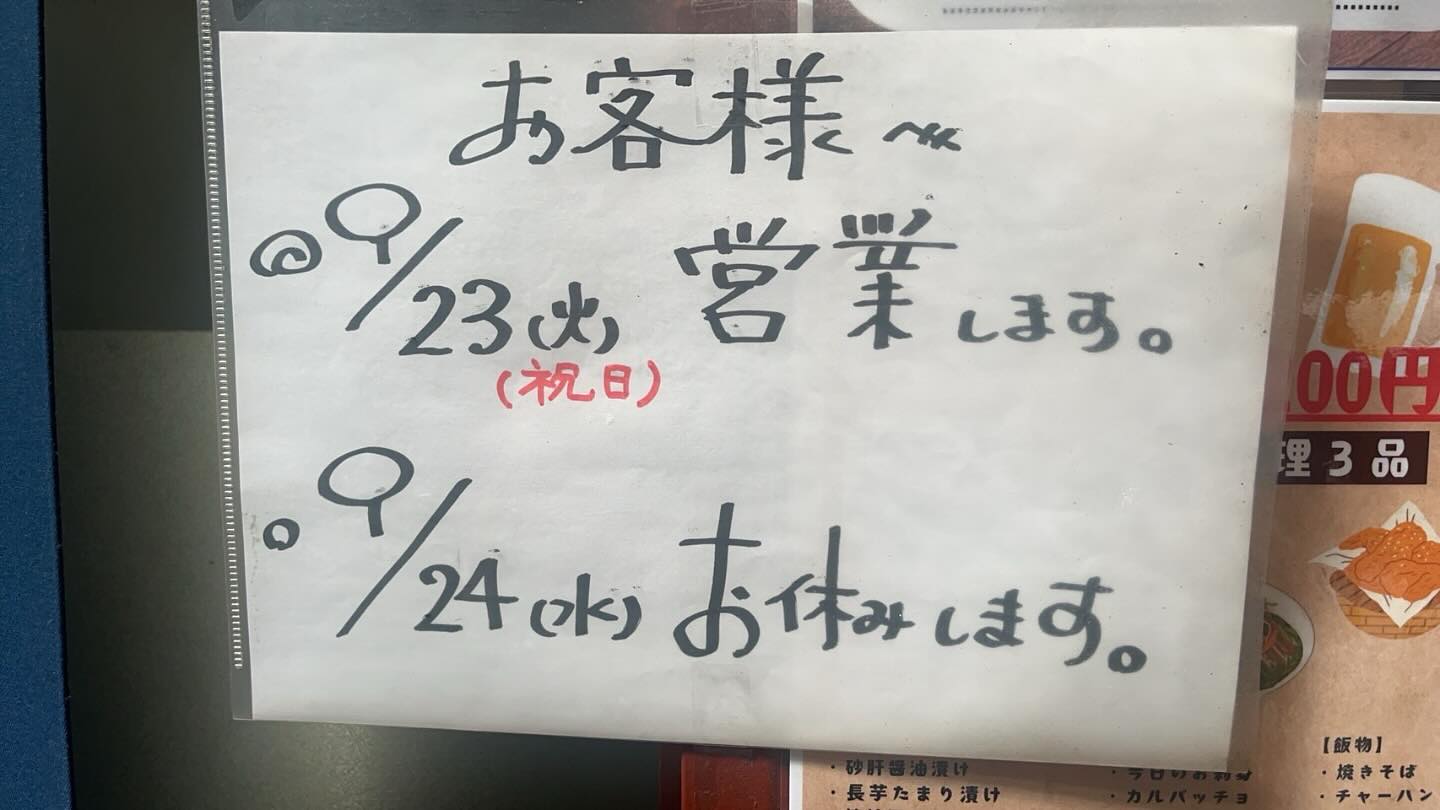 お客様へ
◎9/23(火) 営業します。
(祝日)
。9/24(水) お休みします。
00円
理3品
【飯物】
・砂肝醤油漬け ・今日のお刺身 ・焼きそば
・長芋たまり漬け ・カルパッチョ ・チャーハン